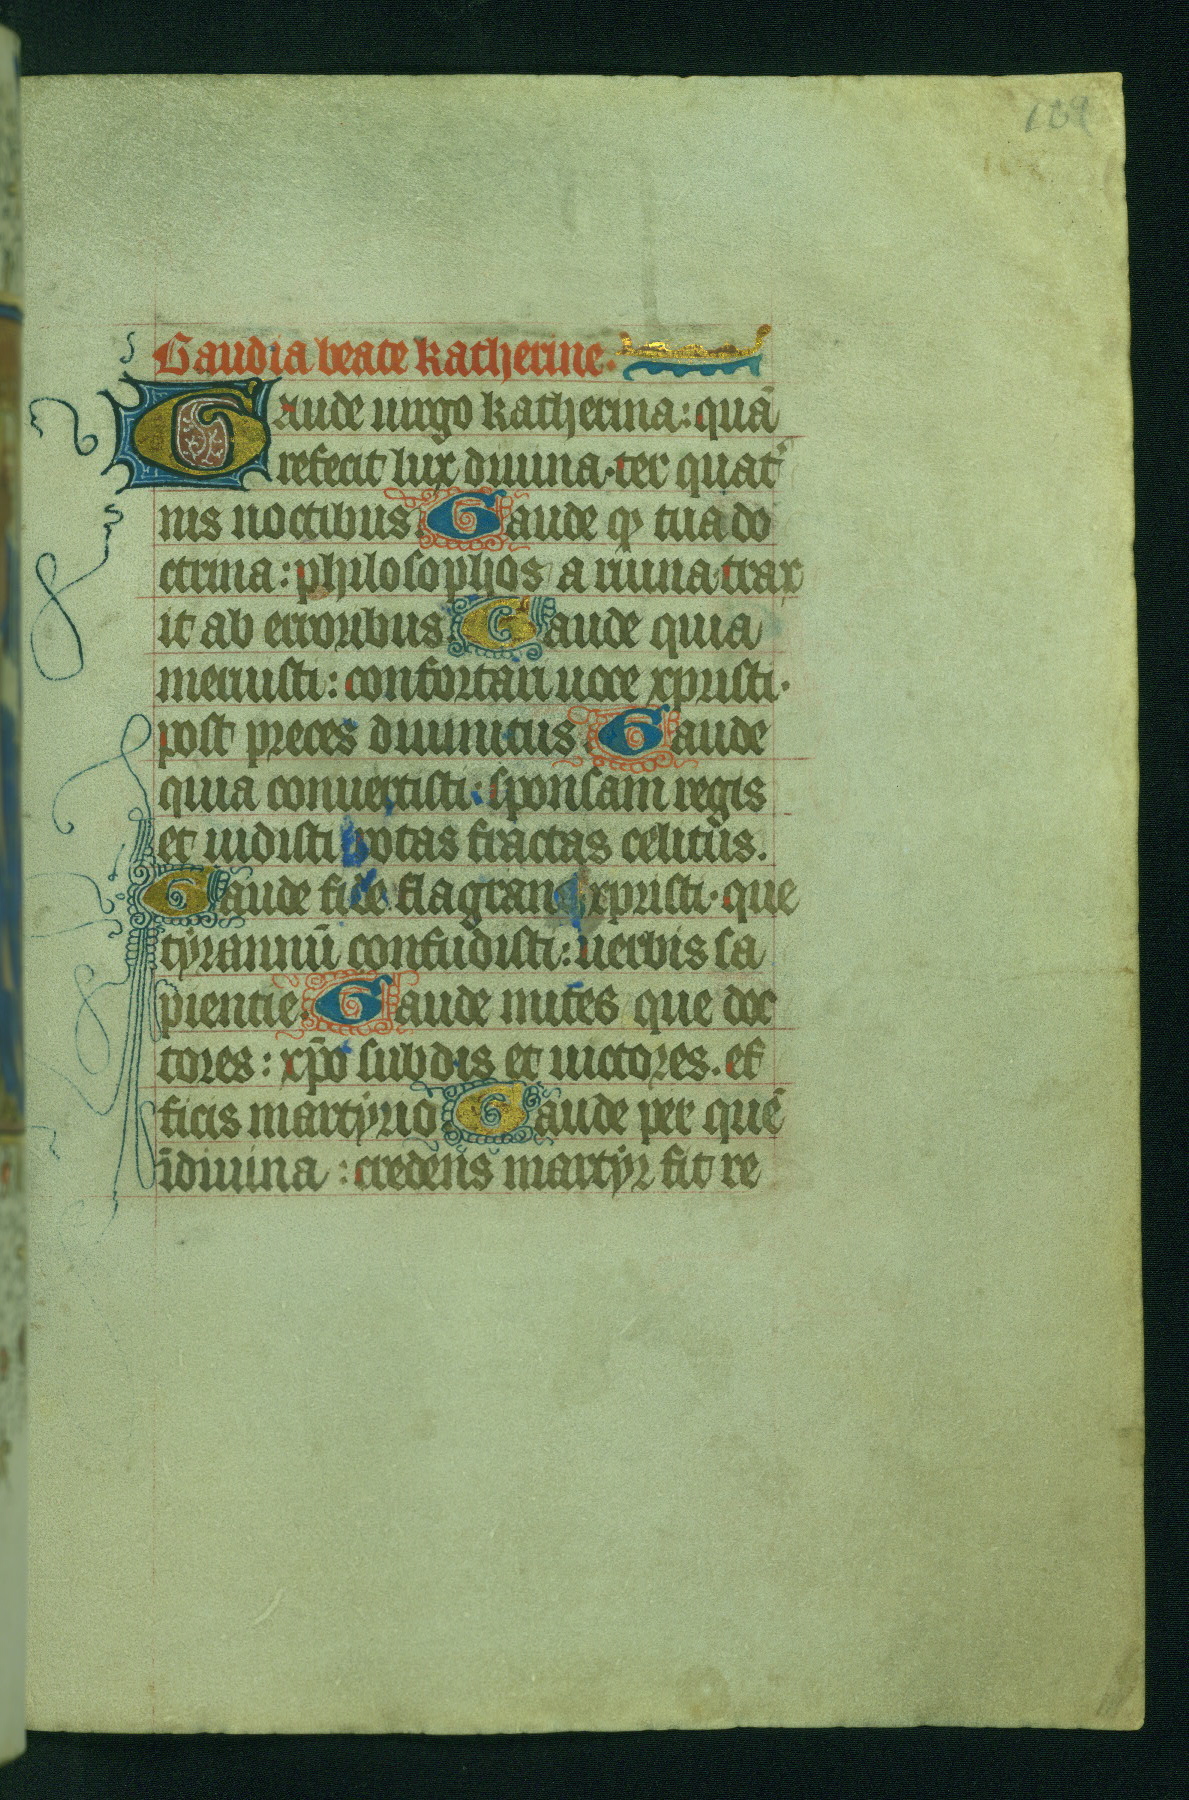 109
Gaudia beate katherine.
Gaude uirgo katherina: quā
refecit lux diuina· ter quat᷑
nis noctibus Gaude ꝙ tua do
ctrina: philosophos a ruina trax
it ab erroribus Gaude quia
meruisti: confortari uoce xpristi·
post preces diuinitus Gaude
quia conuertisti· sponsam regis
et uidisti rotas fractas celitus.
Gaude fide flagrans xpristi· que
tyrannū confudisti: uerbis sa
pientie Gaude mites que doc
tores: xp̄o subdis et uictores. ef
ficis martyrio Gaude per quē
īdiuina: credens martyr fit re